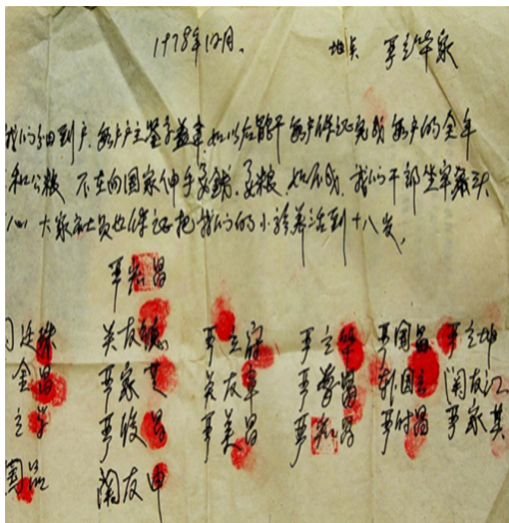 1978年12月. 地点 严立华家
我们分田到户.每户户主签字盖章.如以后能干.每户保证完成每户的全年
和公粮 不在向国家伸手要钱.要粮 如不成.我们干部坐牢杀头
心 大家社员也保证把我们的小孩养活到十八岁.
严宏昌
廷珠 关友德 严立富 严立华 严国昌 严立坤
金昌 严家芝 关友章 严学昌 韩国云 关友江
立学 严俊昌 严美昌 严宏昌 严付昌 严家其
国品 关友申